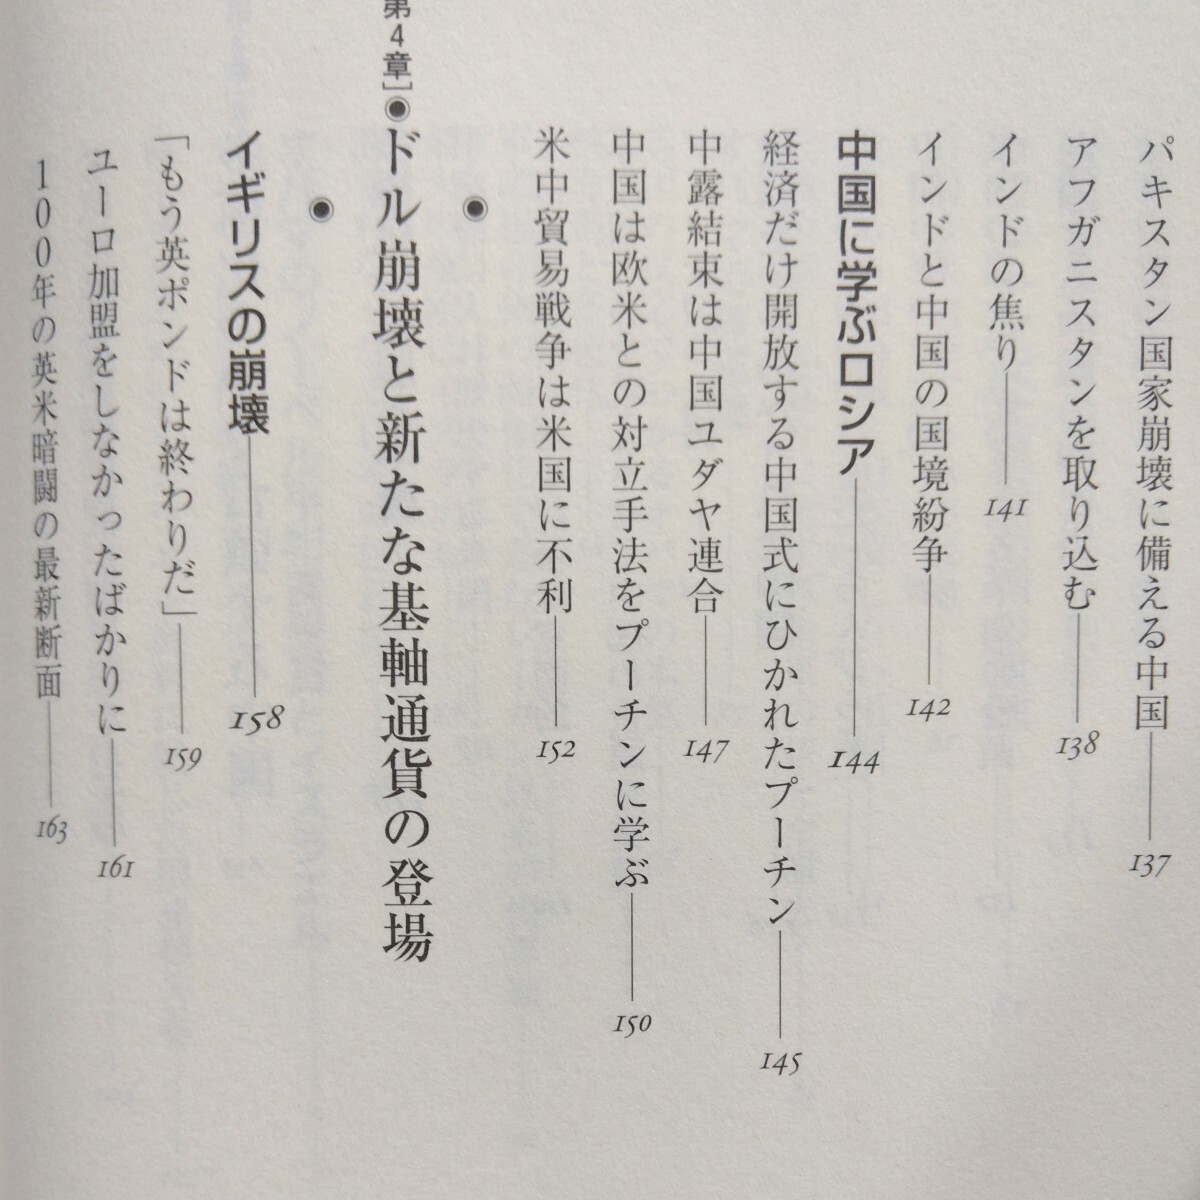 パキスタン国家崩壊に備える中国 137
アフガニスタンを取り込む 138
インドの焦り 141
インドと中国の国境紛争 142
中国に学ぶロシア 144
経済だけ開放する中国式にひかれたプーチン 145
中露結束は中国ユダヤ連合 147
中国は欧米との対立手法をプーチンに学ぶ 150
米中貿易戦争は米国に不利 152
第4章]◉ドル崩壊と新たな基軸通貨の登場
イギリスの崩壊 158
「もう英ポンドは終わりだ」 159
ユーロ加盟をしなかったばかりに 161
100年の英米暗闘の最新断面 163